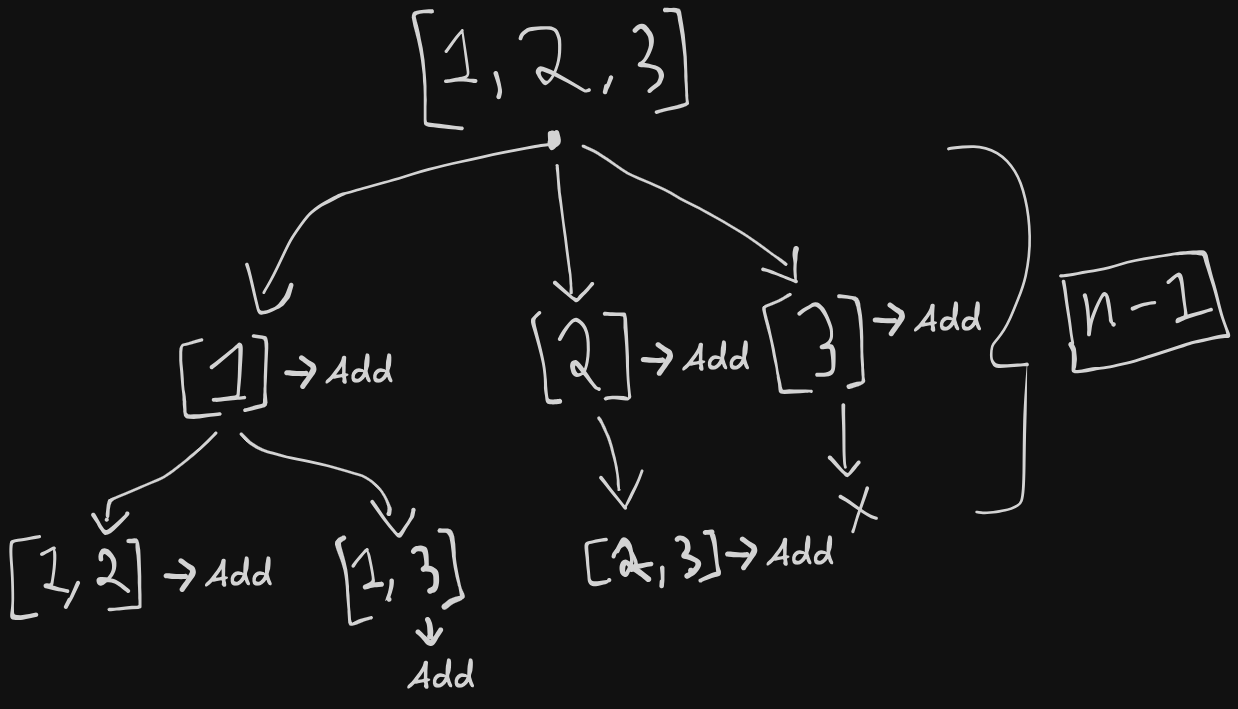 [1, 2, 3]
[1] → Add
[2] → Add
[3] → Add
n-1
[1, 2] → Add
[1, 3]
↓
Add
[2, 3] → Add
X